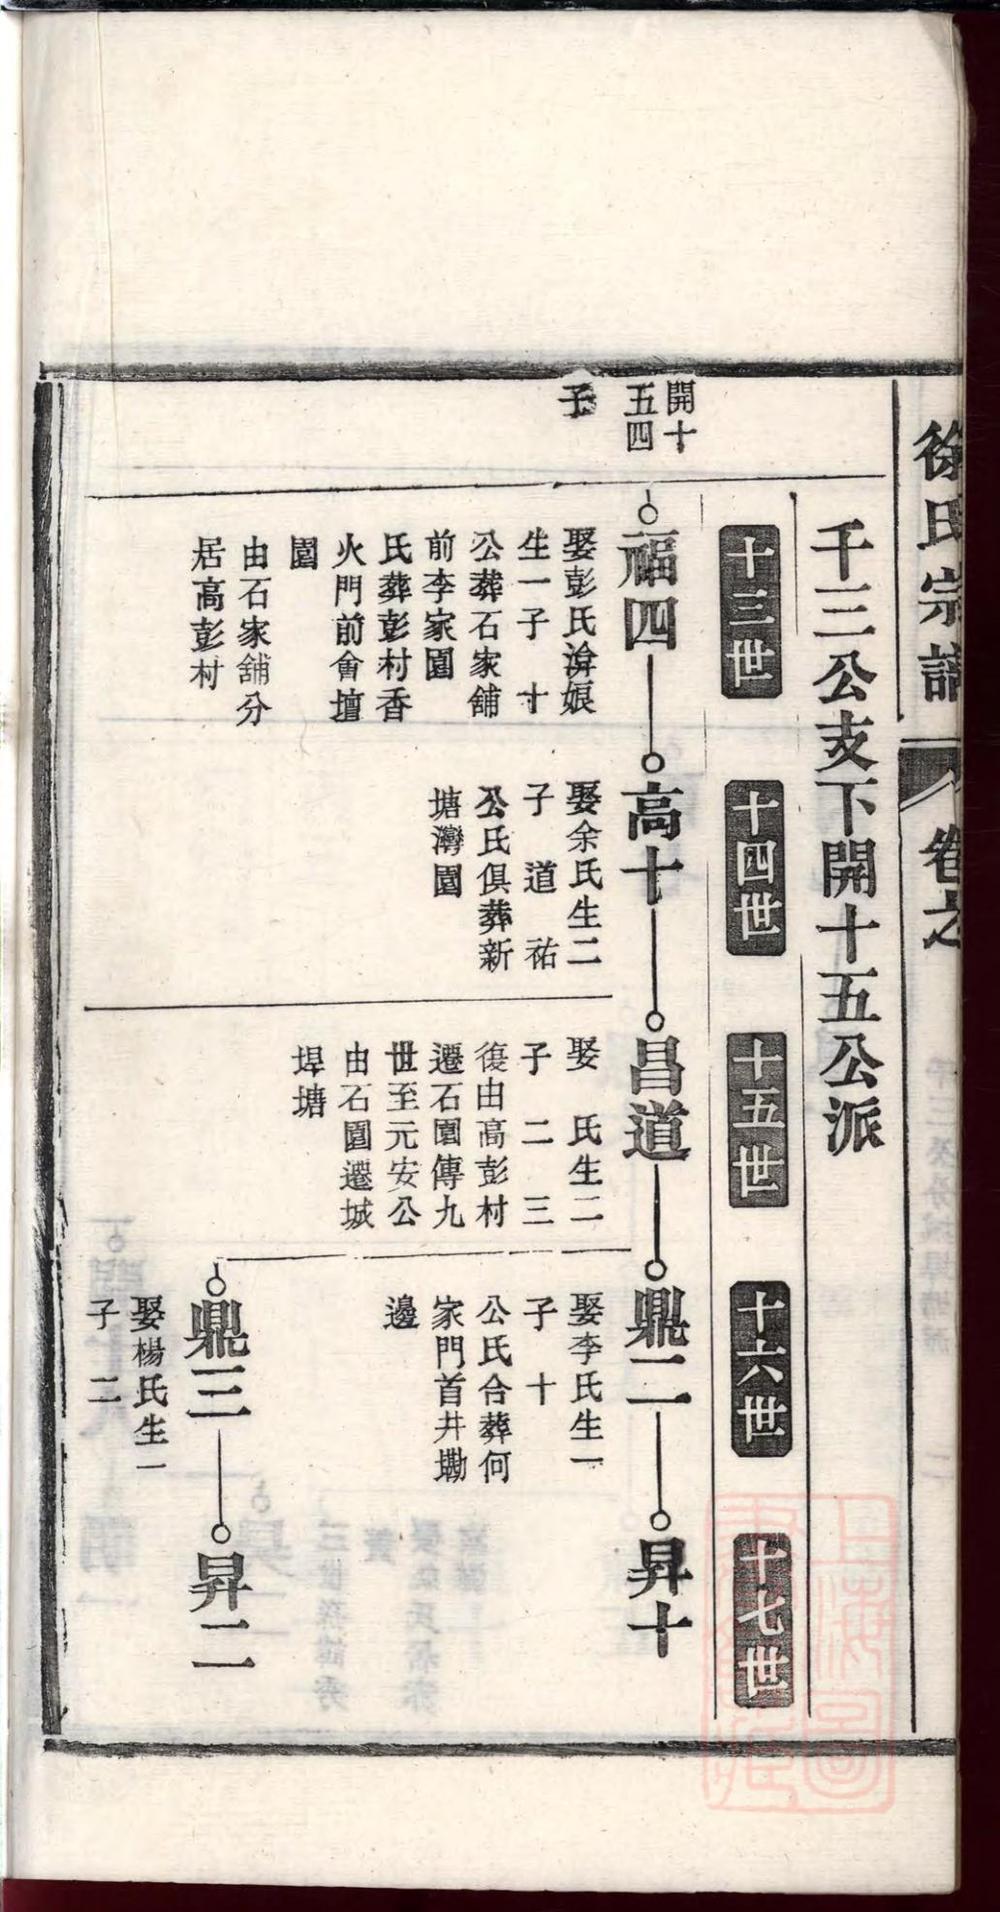 徐氏宗譜
卷之
千三公支下開十五公派
十三世
十四世
十五世
十六世
十七世
開十
五四
子
福四
娶彭氏渰娘
生一子 十
公葬石家舖
前李家園
氏葬彭村香
火門前會壇
園
由石家舖分
居高彭村
高十
娶余氏生二
子 道 祐
公氏俱葬新
塘灣園
昌道
娶 氏生二
子 二 三
復由高彭村
遷石園傳九
世至元安公
由石園遷城
埠塘
鼎二
娶李氏生一
子 十
公氏合葬何
家門首井塝
邊
昇十
鼎三
娶楊氏生一
子 二
昇二